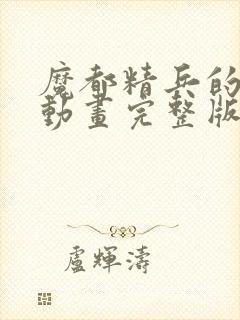 魔都精兵的
動畫完整版
盧輝濤